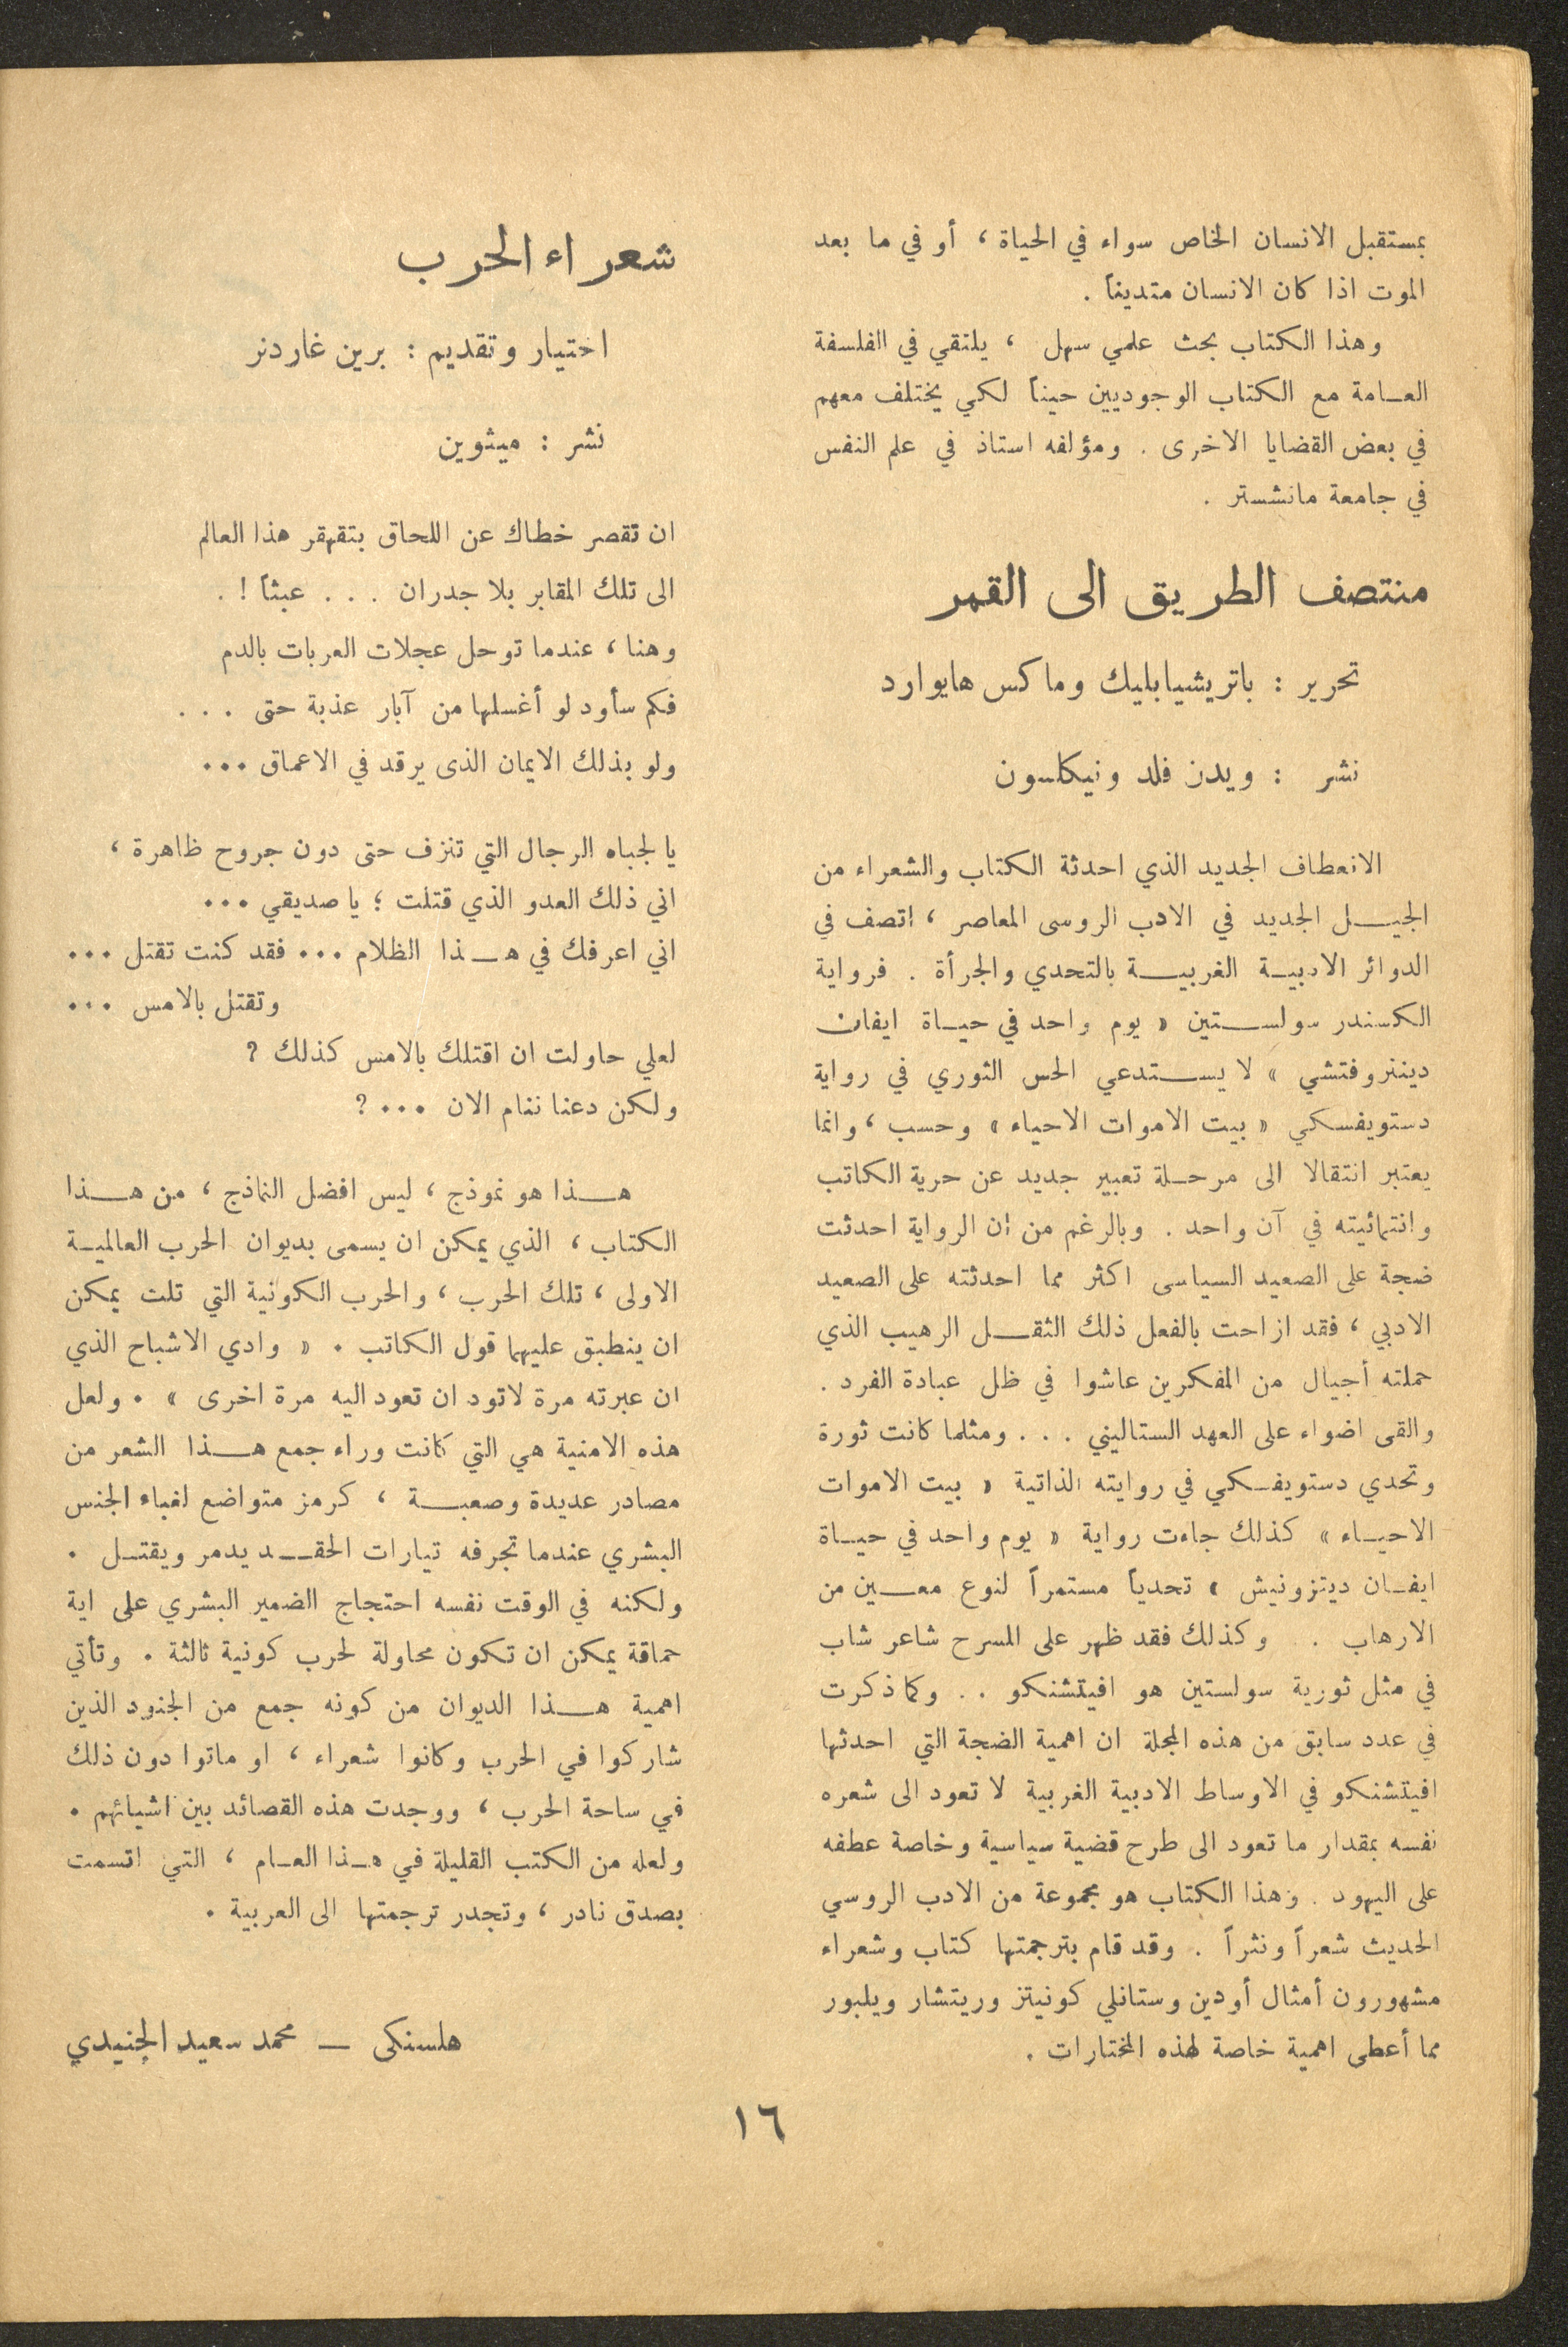 بمستقبل الانسان الخاص سواء في الحياة ، أو في ما بعد
الموت اذا كان الانسان متديناً .
وهذا الكتاب بحث علمي سهل ، يلتقي في الفلسفة
العـامة مع الكتاب الوجوديين حيناً لكي يختلف معهم
في بعض القضايا الاخرى . ومؤلفه استاذ في علم النفس
في جامعة مانشستر .
منتصف الطريق الى القمر
تحرير : باتريشيابليك وماكس هايوارد
نشر : ويدن فلد ونيكلسون
الانعطاف الجديد الذي احدثة الكتاب والشعراء من
الجيـل الجديد في الادب الروسى المعاصر ، اتصف في
الدوائر الادبيـة الغربيـة بالتحدي والجرأة . فرواية
الكسندر سولسـتين « يوم واحد في حيـاة ايفان
ديننروفتشي » لا يسـتدعي الحس الثوري في رواية
دستويفسكي « بيت الاموات الاحياء » وحسب ، وانما
يعتبر انتقالا الى مرحـلة تعبير جديد عن حرية الكاتب
وانتمائيته في آن واحد . وبالرغم من ان الرواية احدثت
ضجة على الصعيد السياسى اكثر مما احدثته على الصعيد
الادبي ، فقد ازاحت بالفعل ذلك الثقـل الرهيب الذي
حملته أجيال من المفكرين عاشوا في ظل عبادة الفرد .
والقى اضواء على العهد الستاليني . . . ومثلما كانت ثورة
وتحدي دستويفـكي في روايته الذاتية « بيت الاموات
الاحيـاء » كذلك جاءت رواية « يوم واحد في حيـاة
ايفـان ديتزونيش » تحدياً مستمراً لنوع معـين من
الارهاب . . وكذلك فقد ظهر على المسرح شاعر شاب
في مثل ثورية سولستين هو افيتشنكو . . وكما ذكرت
في عدد سابق من هذه المجلة ان اهمية الضجة التي احدثها
افيتشنكو في الاوساط الادبية الغربية لا تعود الى شعره
نفسه بمقدار ما تعود الى طرح قضية سياسية وخاصة عطفه
على اليهود . وهذا الكتاب هو مجموعة من الادب الروسي
الحديث شعراً ونثراً . وقد قام بترجمتها كتاب وشعراء
مشهورون أمثال أودين وستانلي كونيتز وريتشار ويلبور
مما أعطى اهمية خاصة لهذه المختارات .
شعراء الحرب
اختيار وتقديم : برين غاردنر
نشر : ميثوين
ان تقصر خطاك عن اللحاق بتقهقر هذا العالم
الى تلك المقابر بلا جدران . . . عبثاً ! .
وهنا ، عندما توحل عجلات العربات بالدم
فكم سأود لو أغسلها من آبار عذبة حتى . . .
ولو بذلك الايمان الذى يرقد في الاعماق ...
يا لجباه الرجال التي تنزف حتى دون جروح ظاهرة ،
اني ذلك العدو الذي قتلت ؛ يا صديقي ...
اني اعرفك في هـذا الظلام ... فقد كنت تقتل ...
وتقتل بالامس ...
لعلي حاولت ان اقتلك بالامس كذلك ؟
ولكن دعنا ننام الان ... ؟
هـذا هو نموذج ، ليس افضل النماذج ، من هـذا
الكتاب ، الذي يمكن ان يسمى بديوان الحرب العالميـة
الاولى ، تلك الحرب ، والحرب الكونية التي تلت يمكن
ان ينطبق عليهما قول الكاتب . « وادي الاشباح الذي
ان عبرته مرة لاتود ان تعود اليه مرة اخرى » . ولعل
هذه الامنية هي التي كانت وراء جمع هـذا الشعر من
مصادر عديدة وصعبـة ، كرمز متواضع لغباء الجنس
البشري عندما تجرفه تيارات الحقـد يدمر ويقتـل .
ولكنه في الوقت نفسه احتجاج الضمير البشري على اية
حماقة يمكن ان تكون محاولة لحرب كونية ثالثة . وتأتي
اهمية هـذا الديوان من كونه جمع من الجنود الذين
شاركوا في الحرب وكانوا شعراء ، او ماتوا دون ذلك
في ساحة الحرب ، ووجدت هذه القصائد بين اشيائهم .
ولعله من الكتب القليلة في هـذا العـام ، التي اتسمت
بصدق نادر ، وتجدر ترجمتها الى العربية .
هلسنكى ــ محمد سعيد الجنيدي
١٦